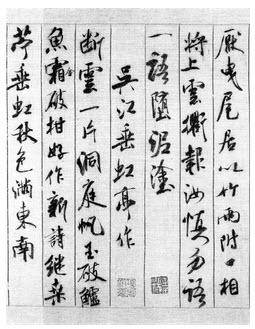 厭曳尾居以竹兩附口相
將上雲衢報汝慎勿語
一語墮泥塗
吳江垂虹亭作
断雲一片洞庭帆玉破鱸
魚霜破柑好作新詩继桑
苧垂虹秋色滿東南